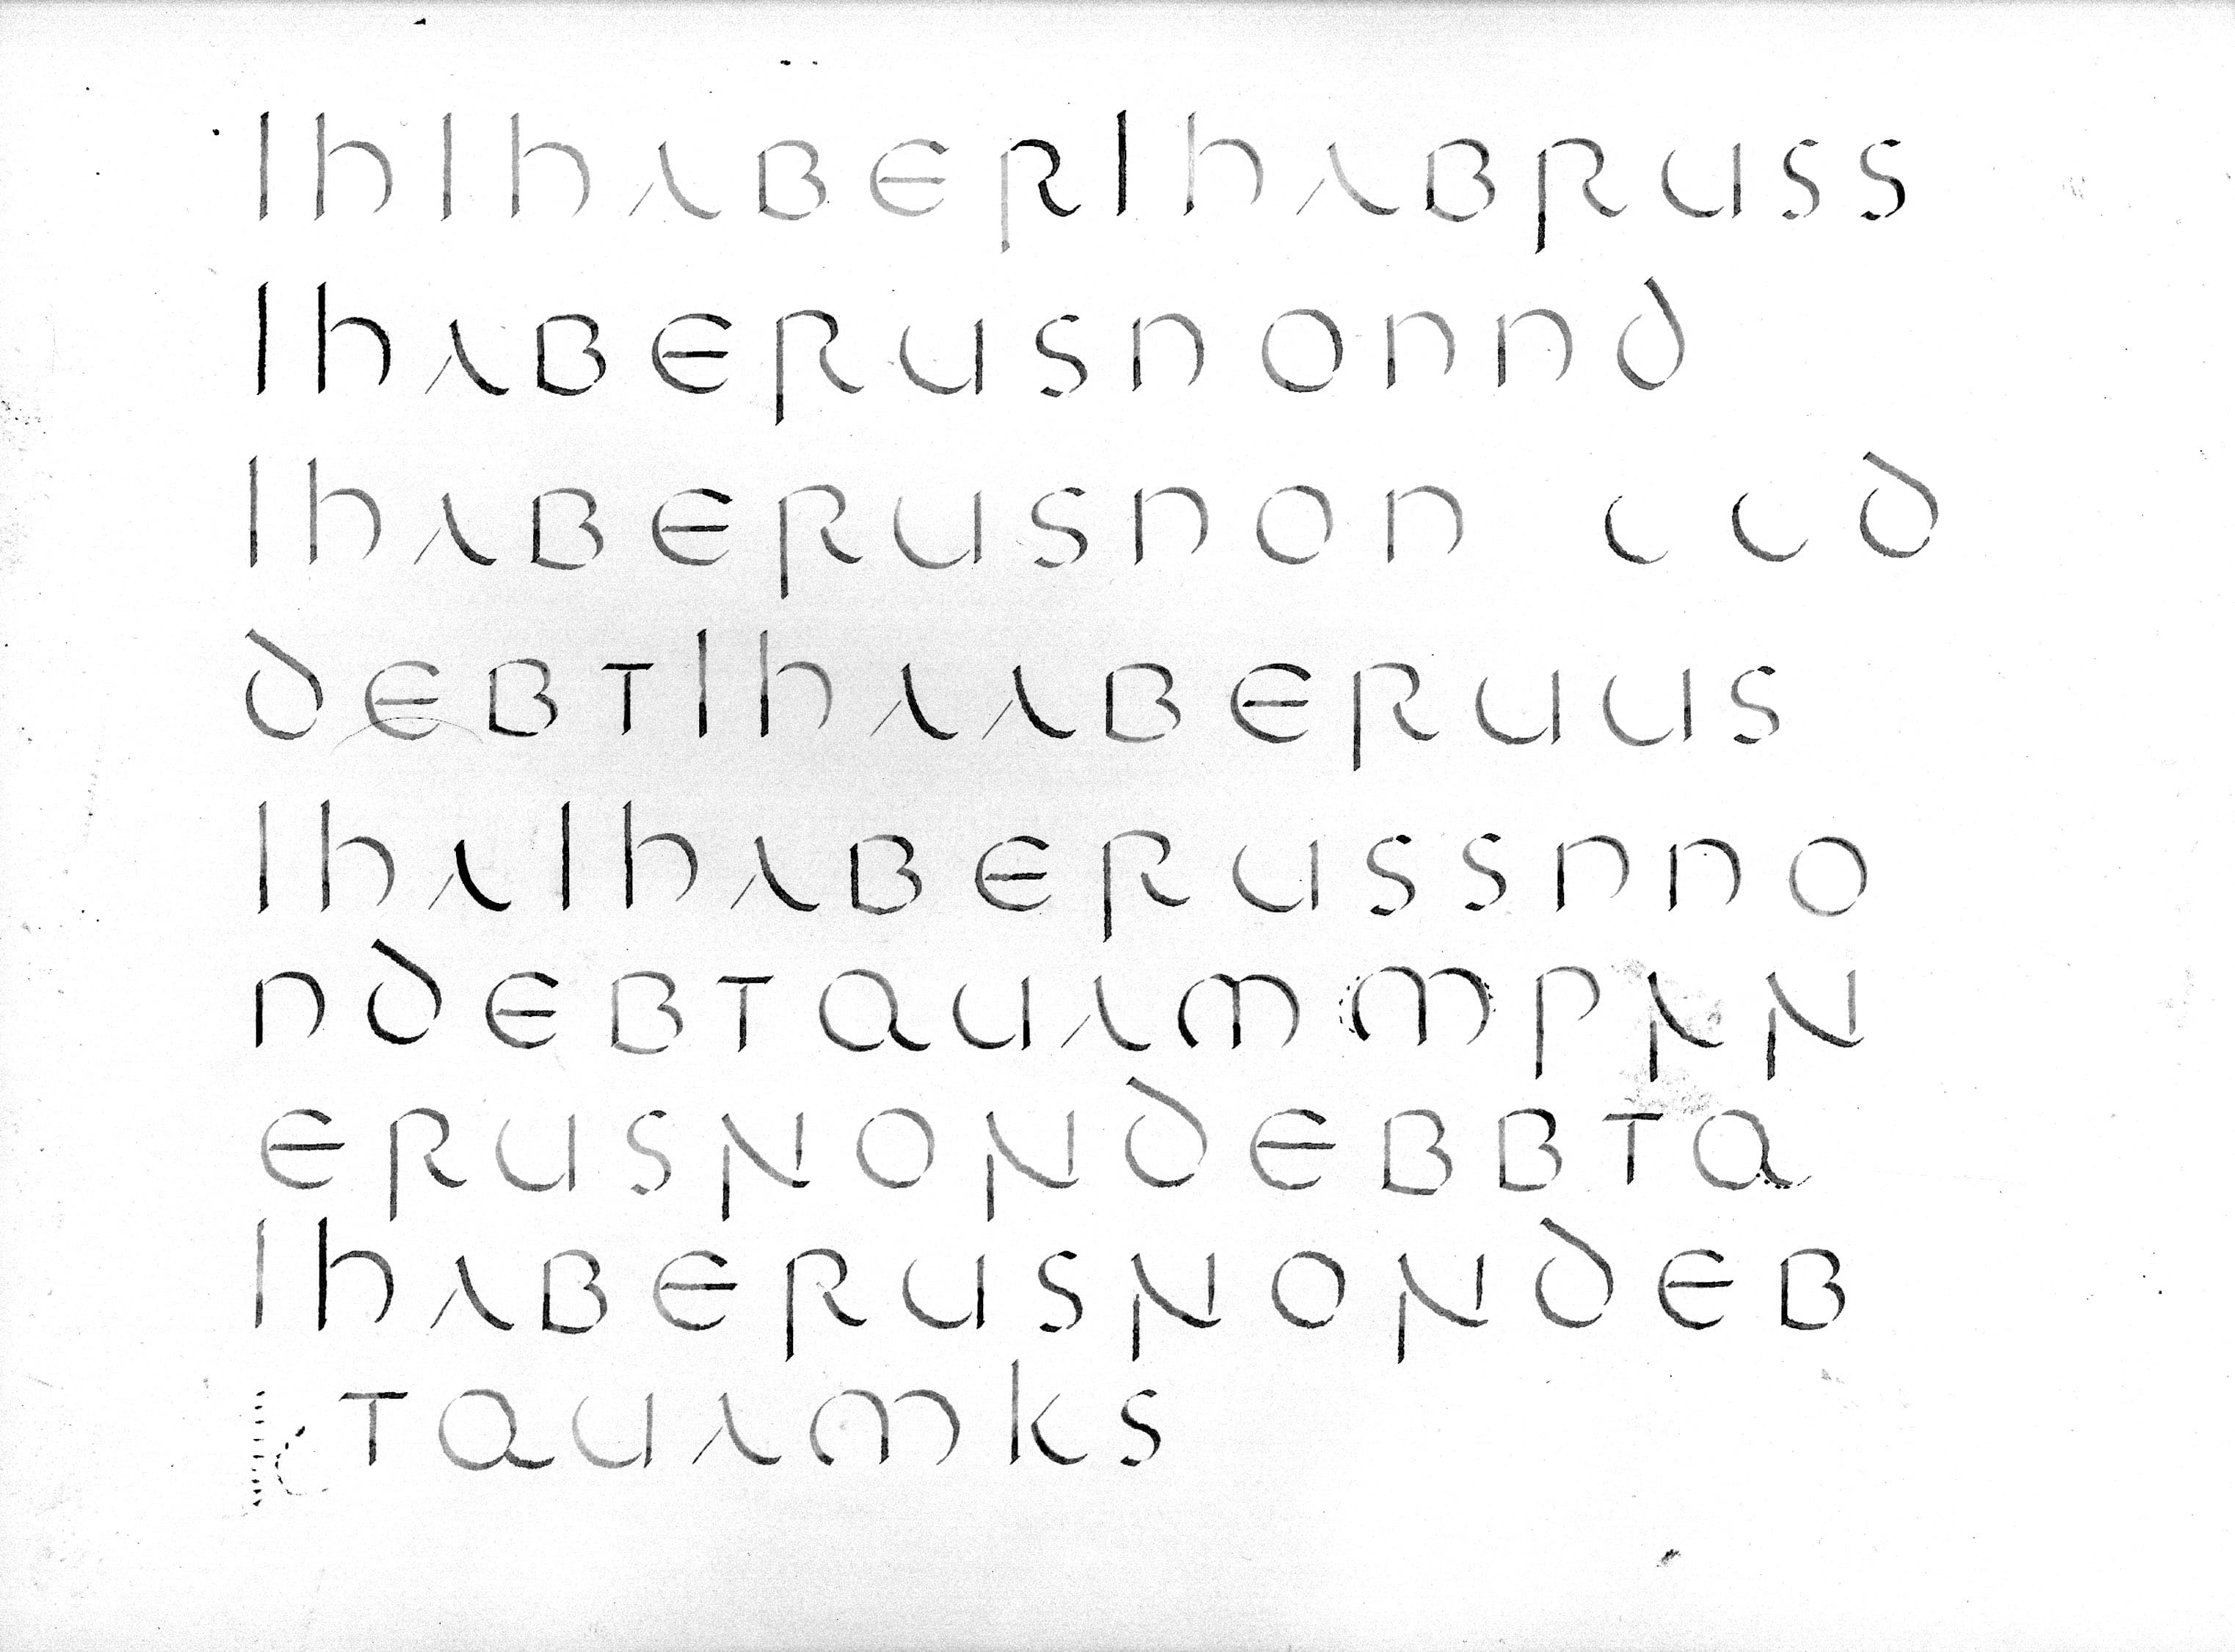 lhlhaBERlhaBRUSS
lhaBERUSnonnd
lhaBERUSnon ccd
dEBTlhaaBERUUS
lhalhaBERUSSnno
ndEBTaUammpNN
ERUSNONdEBBTa
lhaBERUSNONdEB
TaUamkS